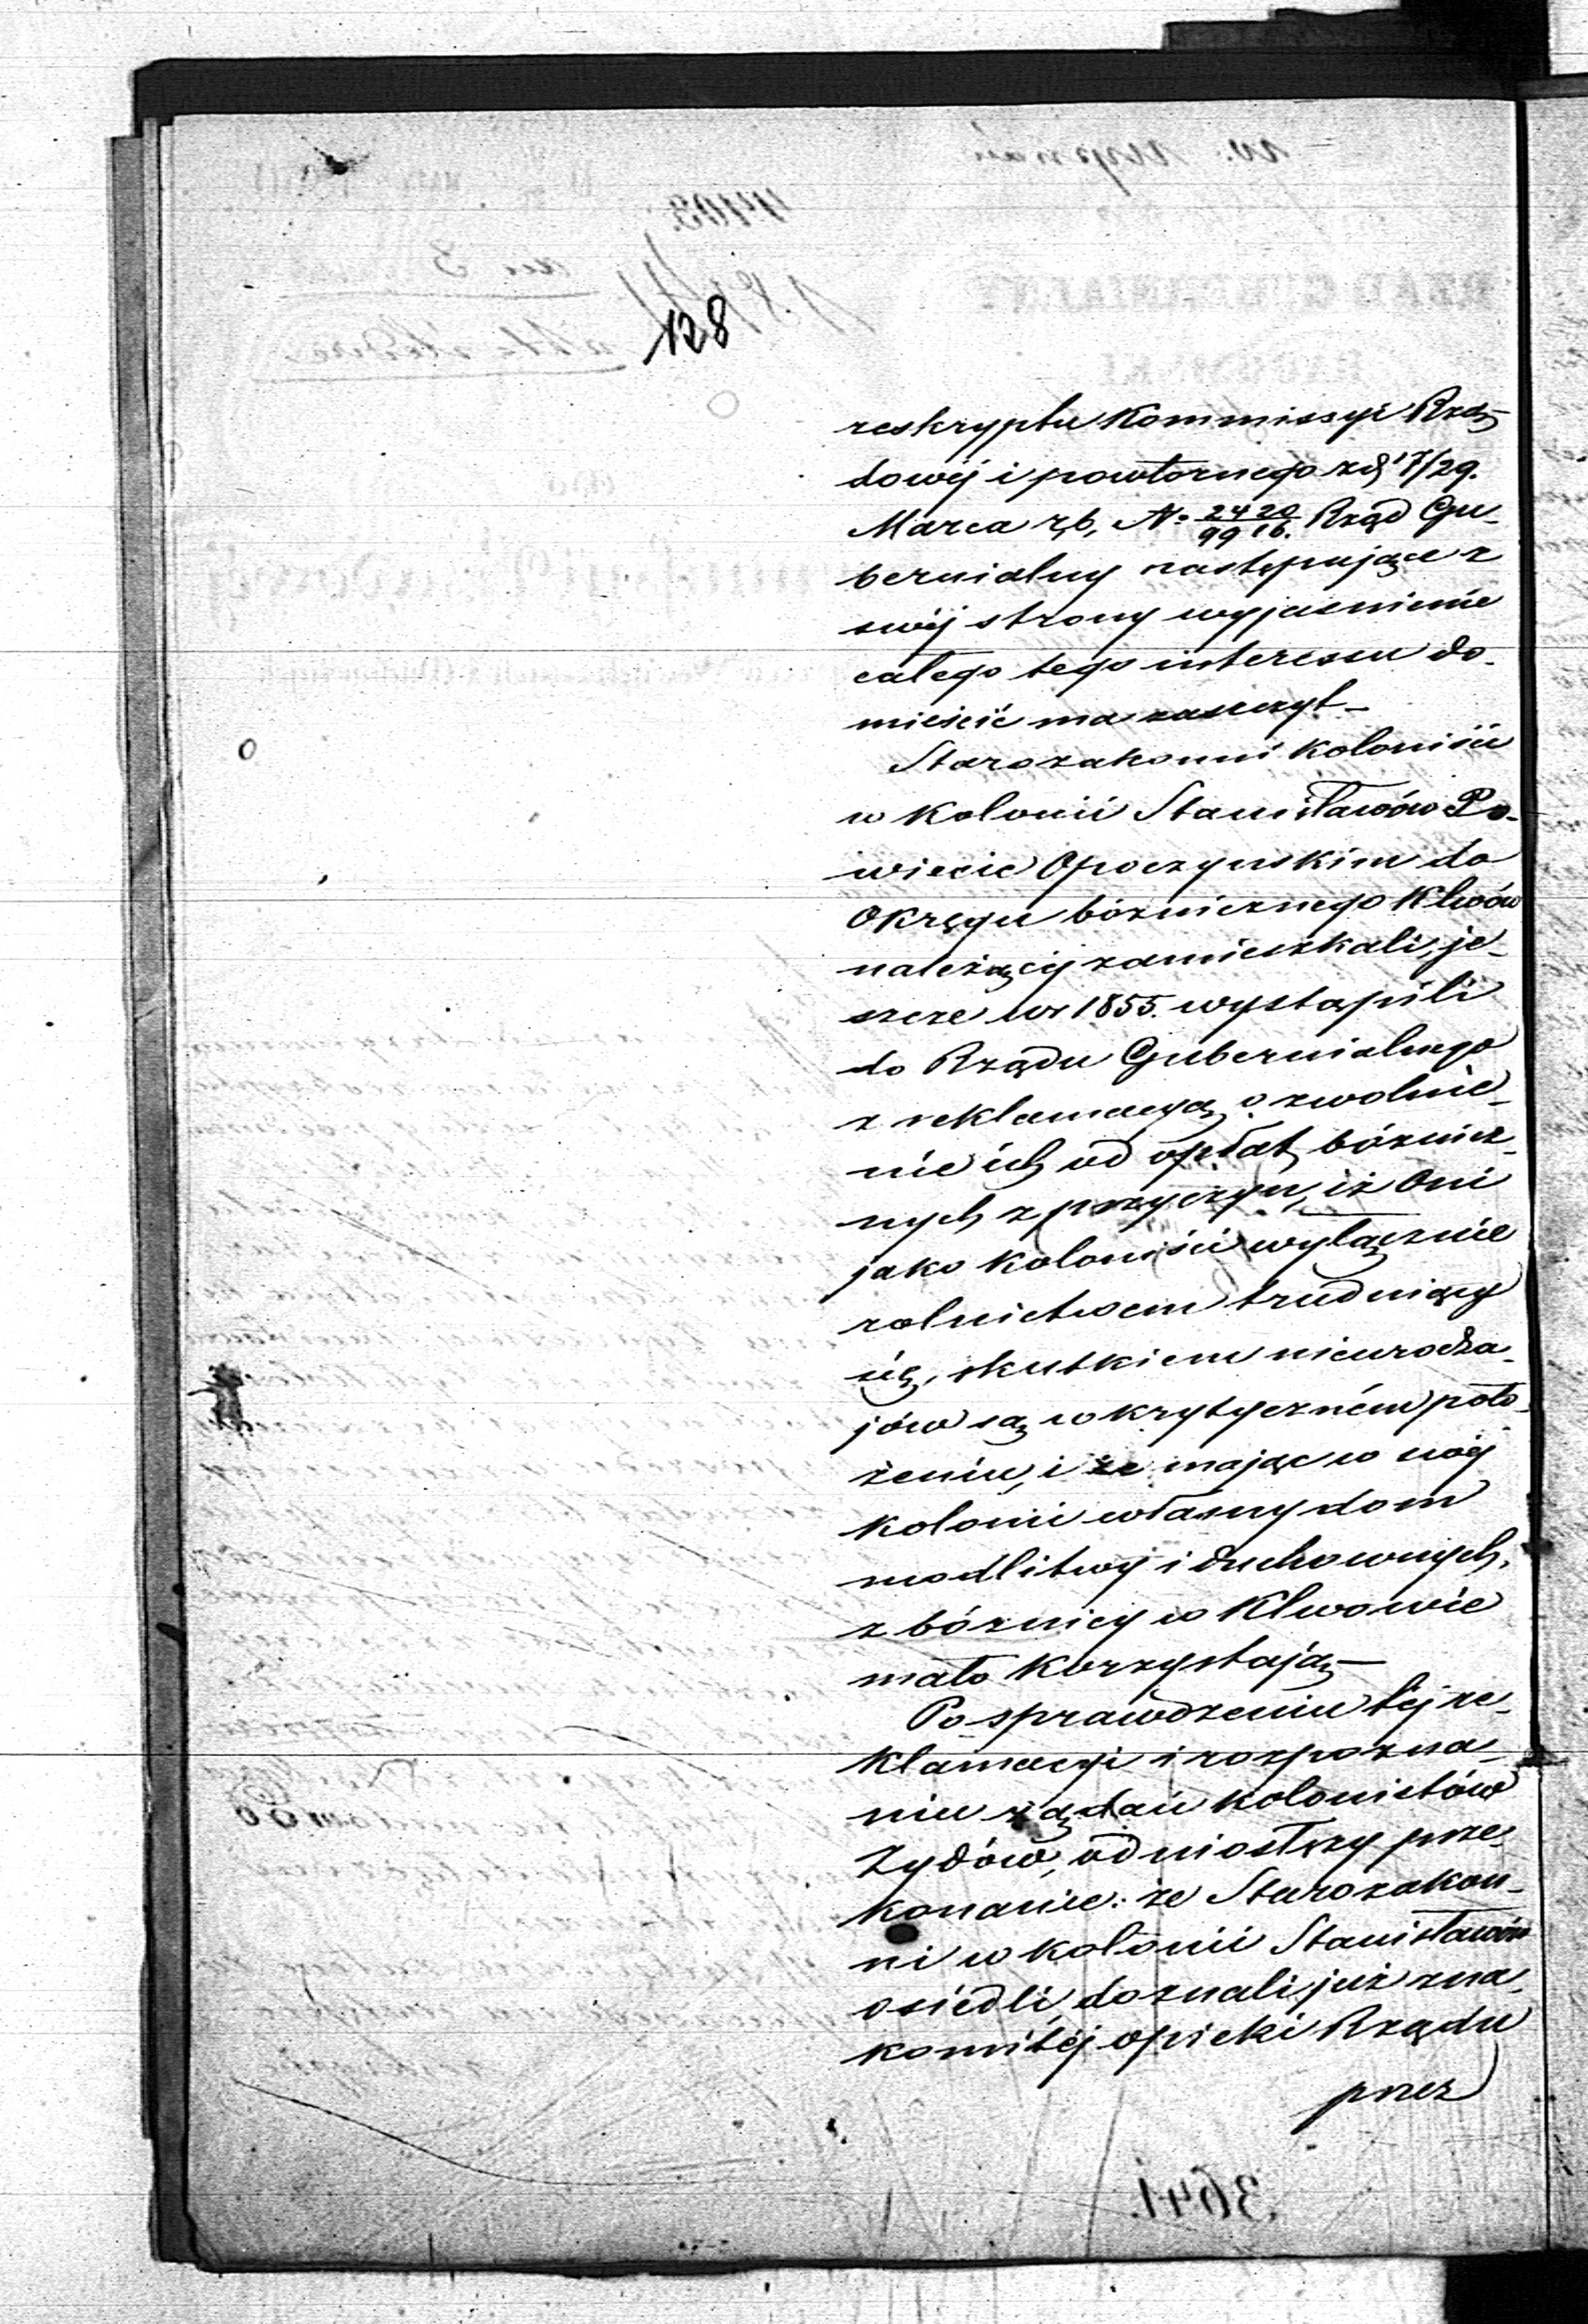 128
reskryptu Kommissyi Rzą-
dowej i powtornego z d 17/29.
Marca r.b. № 2420/9916. Rząd Gu-
bernialny następujące z
swej strony wyjasnienie
całego tego interessu do-
mieścić ma zaszczyt –
Starozakonni koloniści
w kolonii Stanisławów Po-
wiecie Opoczynskim do
Okręgu bóżnicznego Klwów
należącej zamieszkali, je-
szcze w r 1855. wystąpili
do Rządu Gubernialnego
z reklamacyą o zwolnie-
nie ich od opłat bóżnicz-
nych z przyczyn, iż Oni
jako koloniści wyłącznie
rolnictwem trudniący
się, skutkiem nieurodza-
jów są w krytyczném poło-
żeniu, i że mając w swej
kolonii własny dom
modlitwy i duchownych,
z bóżnicy w Klwowie
mało korzystają –
Po sprawdzeniu tej re-
klamacyi i rozpozna-
niu żądań kolonistów
Żydów, odniosłszy prze-
konanie: że Starozakon-
ni w kolonii Stanisławów
osiedli, doznali już zna-
komitej opieki Rządu
przez
3641.